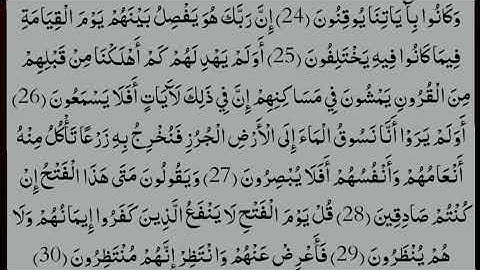 وَكَانُوا بِآَيَاتِنَا يُوقِنُونَ (24) إِنَّ رَبَّكَ هُوَ يَفْصِلُ بَيْنَهُمْ يَوْمَ الْقِيَامَةِ
فِيمَا كَانُوا فِيهِ يَخْتَلِفُونَ (25) أَوَلَمْ يَهْدِ لَهُمْ كَمْ أَهْلَكْنَا مِنْ قَبْلِهِمْ
مِنَ الْقُرُونِ يَمْشُونَ فِي مَسَاكِنِهِمْ إِنَّ فِي ذَلِكَ لَآَيَاتٍ أَفَلَا يَسْمَعُونَ (26)
أَوَلَمْ يَرَوْا أَنَّا نَسُوقُ الْمَاءَ إِلَى الْأَرْضِ الْجُرُزِ فَنُخْرِجُ بِهِ زَرْعًا تَأْكُلُ مِنْهُ
أَنْعَامُهُمْ وَأَنْفُسُهُمْ أَفَلَا يُبْصِرُونَ (27) وَيَقُولُونَ مَتَى هَذَا الْفَتْحُ إِنْ
كُنْتُمْ صَادِقِينَ (28) قُلْ يَوْمَ الْفَتْحِ لَا يَنْفَعُ الَّذِينَ كَفَرُوا إِيمَانُهُمْ وَلَا
هُمْ يُنْظَرُونَ (29) فَأَعْرِضْ عَنْهُمْ وَانْتَظِرْ إِنَّهُمْ مُنْتَظِرُونَ (30)